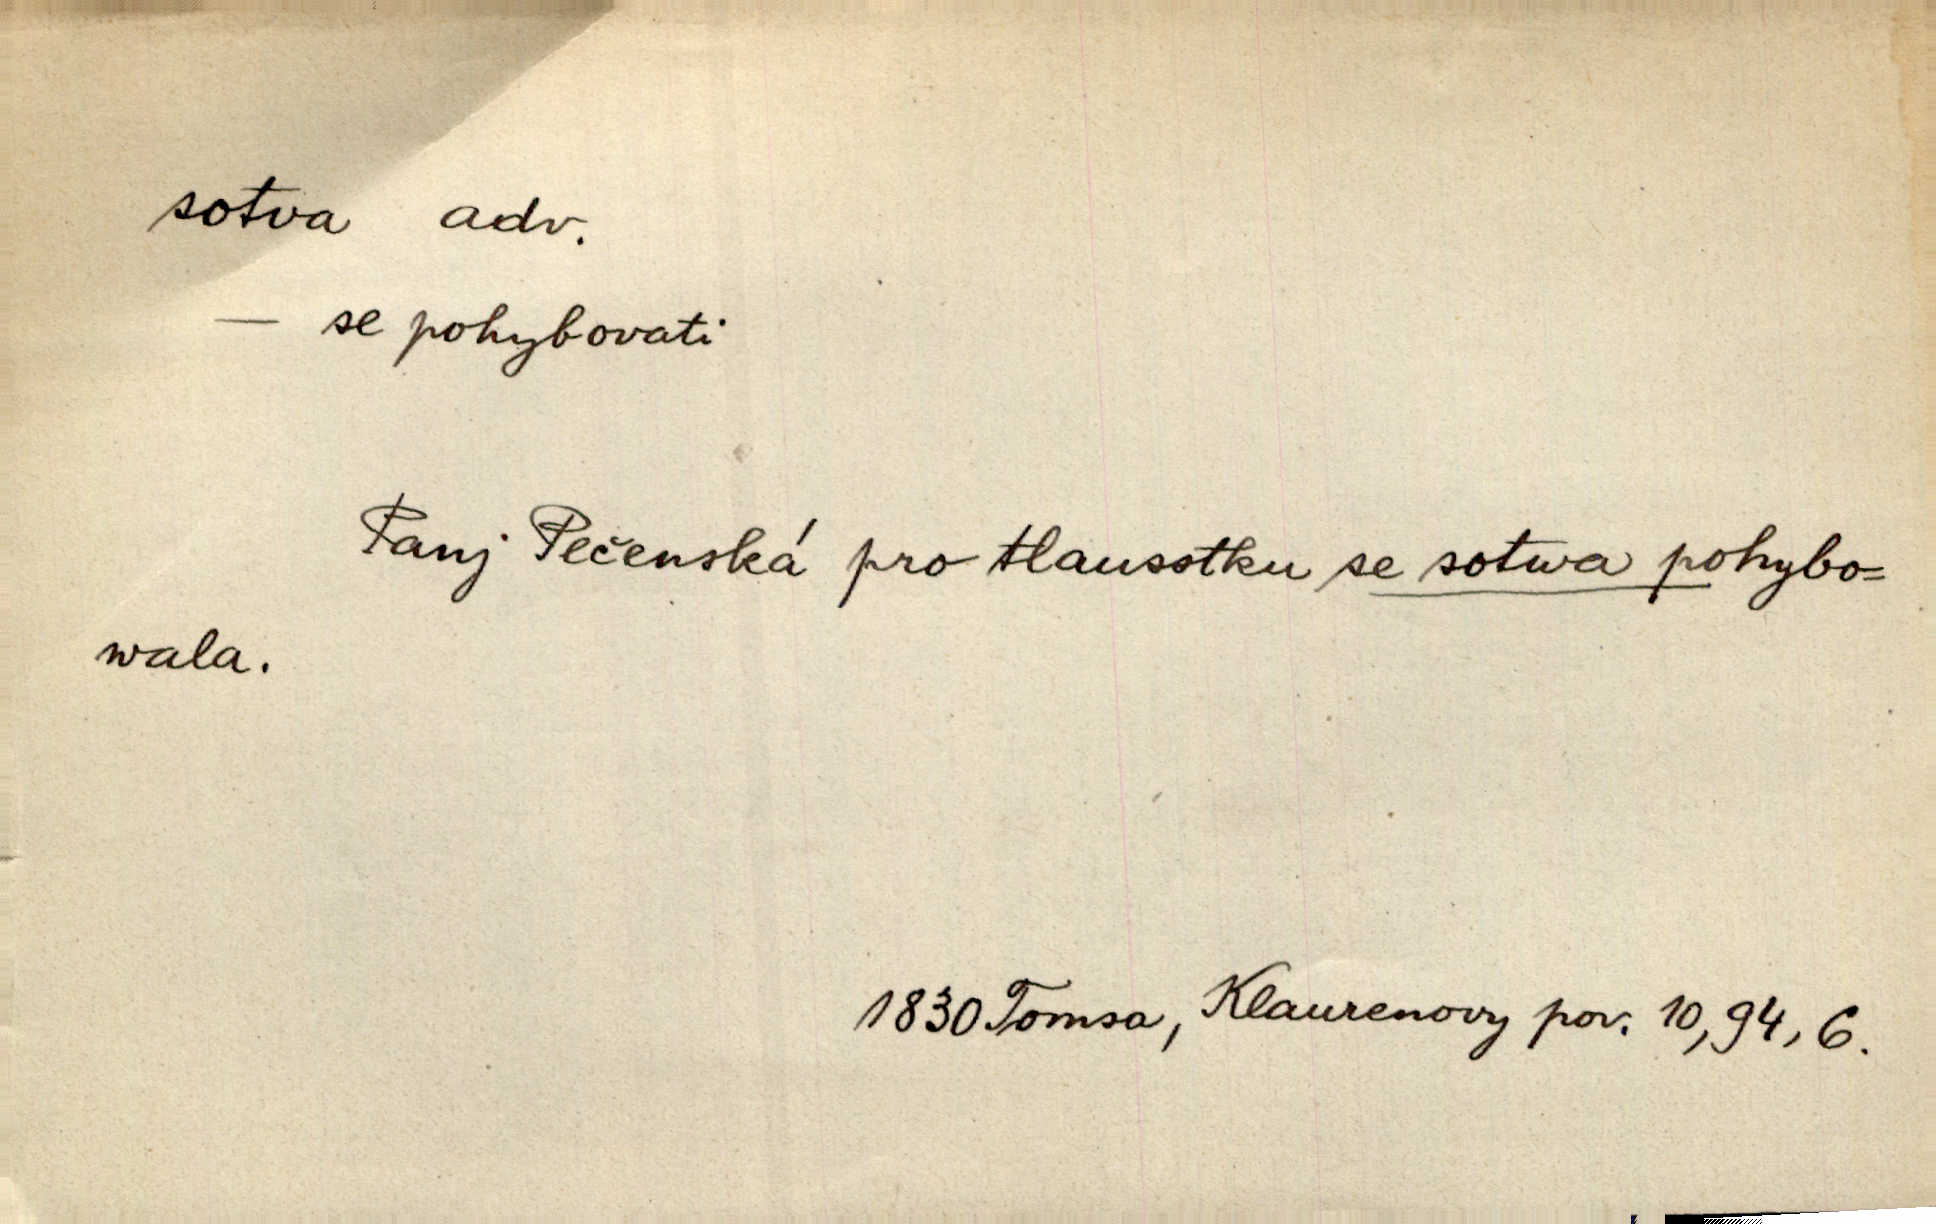 sotva adv.
— se pohybovati
Panj Pečenská pro tlausstku se sotwa pohybo=
wala.
1830 Tomsa, Klaurenovy pov. 10, 94, 6.